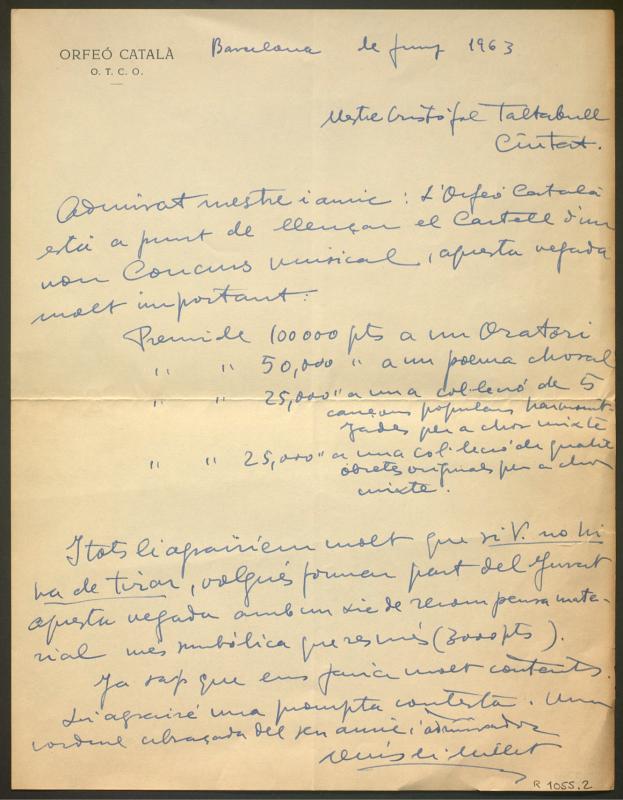 ORFEÓ CATALÀ
O. T. C. O.
Barcelona de Juny 1963
Mestre Cristòfol Taltabull
Ciutat.
Admirat mestre i amic: L'Orfeó Català
està a punt de llençar el Cartell d'un
nou Concurs musical, aquesta vegada
molt important:
Premi de 100000 pts a un Oratori
" " 50,000 " a un poema choral
" " 25,000 " a una col·lecció de 5
cançons populars harmonit-
zades per a chor mixte
" " 25,000 " a una col·lecció de quatre
obretes originals per a chor
mixte.
I tots li agrairíem molt que si V. no hi
ha de tirar, volgués formar part del Jurat
aquesta vegada amb un xic de recompensa mate-
rial més simbòlica que res més (3000 pts).
Ja sap que ens faria molt contents.
Li agrairé una prompta contesta. Una
cordial abraçada del seu amic i admirador
Lluís Mª Millet
R 1055.2